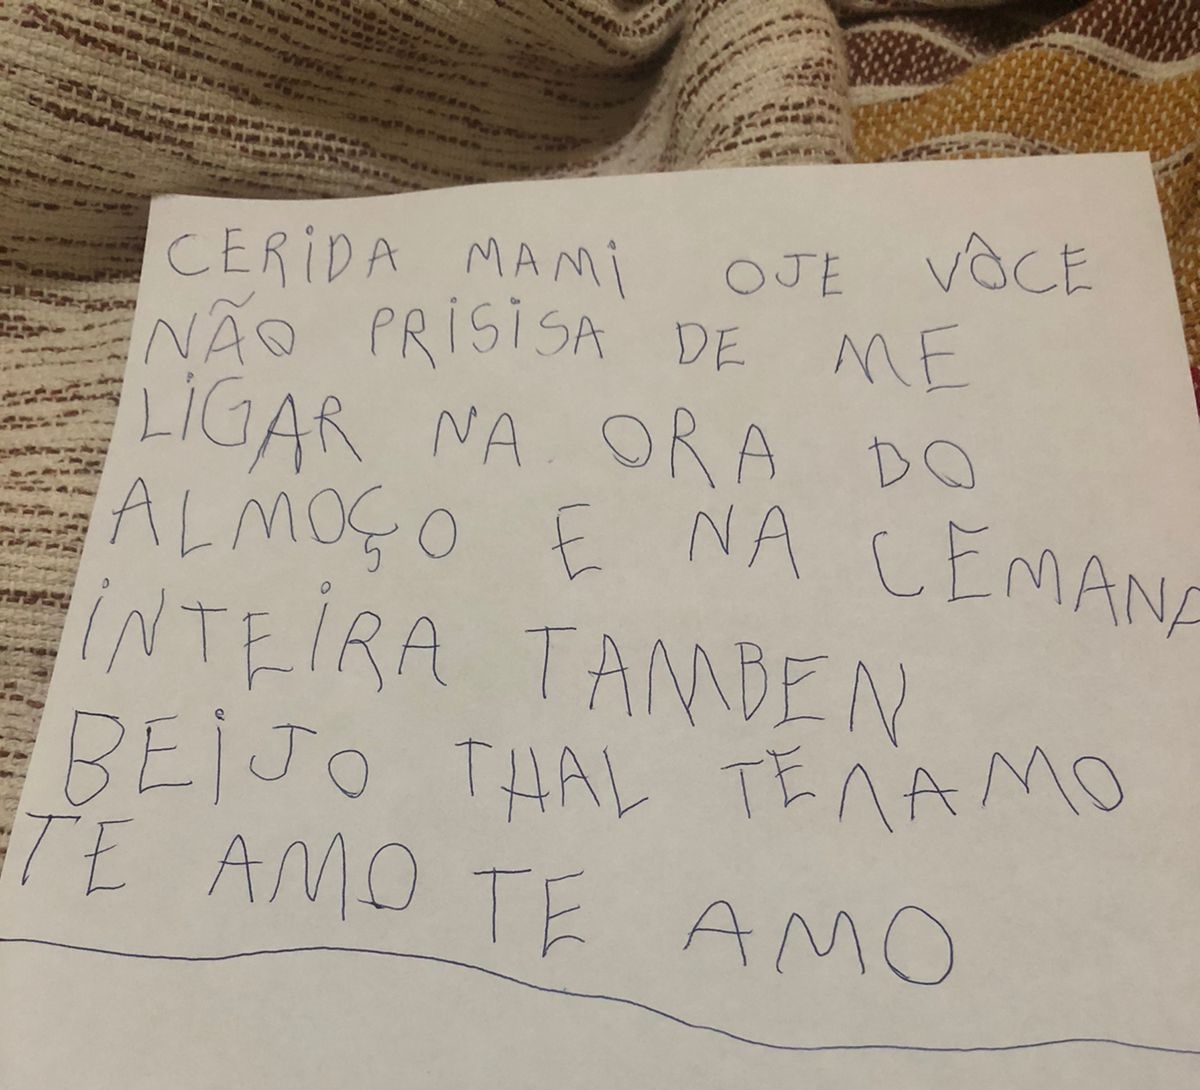 CERiDA MAMi OJE VÔCE
NÃO PRiSiSA DE ME
LiGAR NA ORA DO
ALMOÇO E NA CEMANA
iNTEiRA TAMBEN
BEiJO THAL TE AMO
TE AMO TE AMO